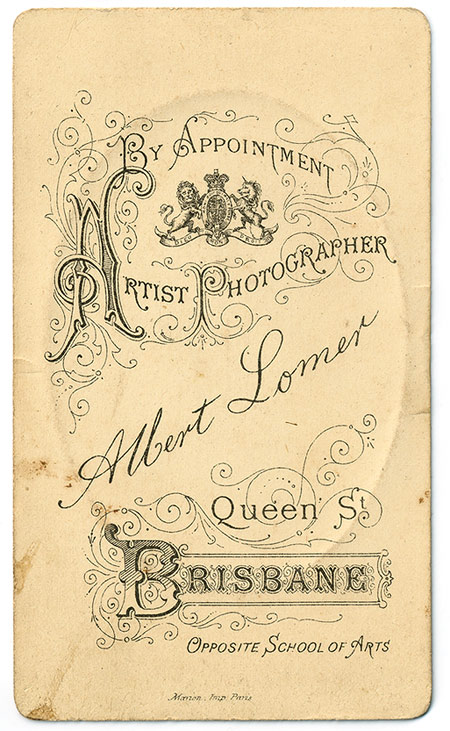 By Appointment
Artist Photographer
Albert Lomer
Queen St
Brisbane
Opposite School of Arts
Marion. Imp. Paris